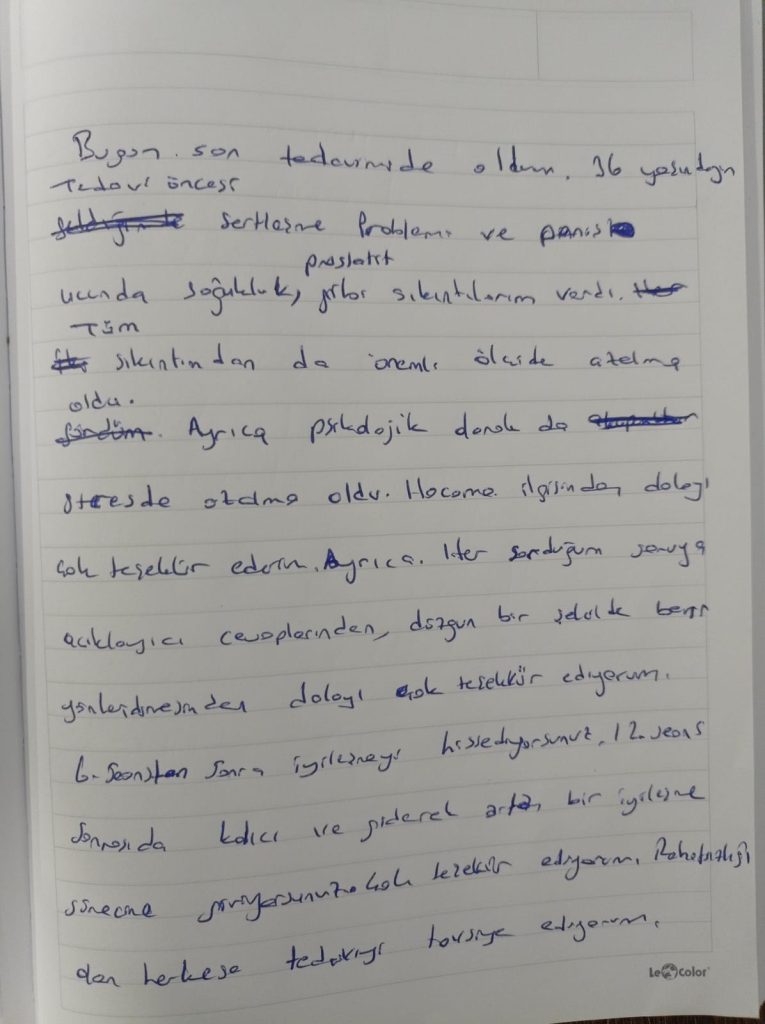 Bugün son tedavimide oldum. 36 yaşındayım
Tedavi öncesi
sertleşme Problemi ve penis
prostatit
ucunda soğukluk, gibi sıkıntılarım vardı.
Tüm
sıkıntımdan da önemli ölçüde azalma
oldu.
Ayrıca psikolojik olarak da
stresde azalma oldu. Hocama ilgisinden dolayı
çok teşekkür ederim. Ayrıca. Her sorduğum soruya
açıklayıcı cevaplarından, düzgün bir şekilde beni
yönlendirmesinden dolayı çok teşekkür ediyorum.
6. Seanstan Sonra iyileşmeyi hissediyorsunuz. 12. seans
Sonrasıda kalıcı ve giderek artan bir iyileşme
sürecine giriyorsunuz. Çok teşekkür ediyorum. Rahatsızlığı
olan herkese tedaviyi tavsiye ediyorum.
LeColor